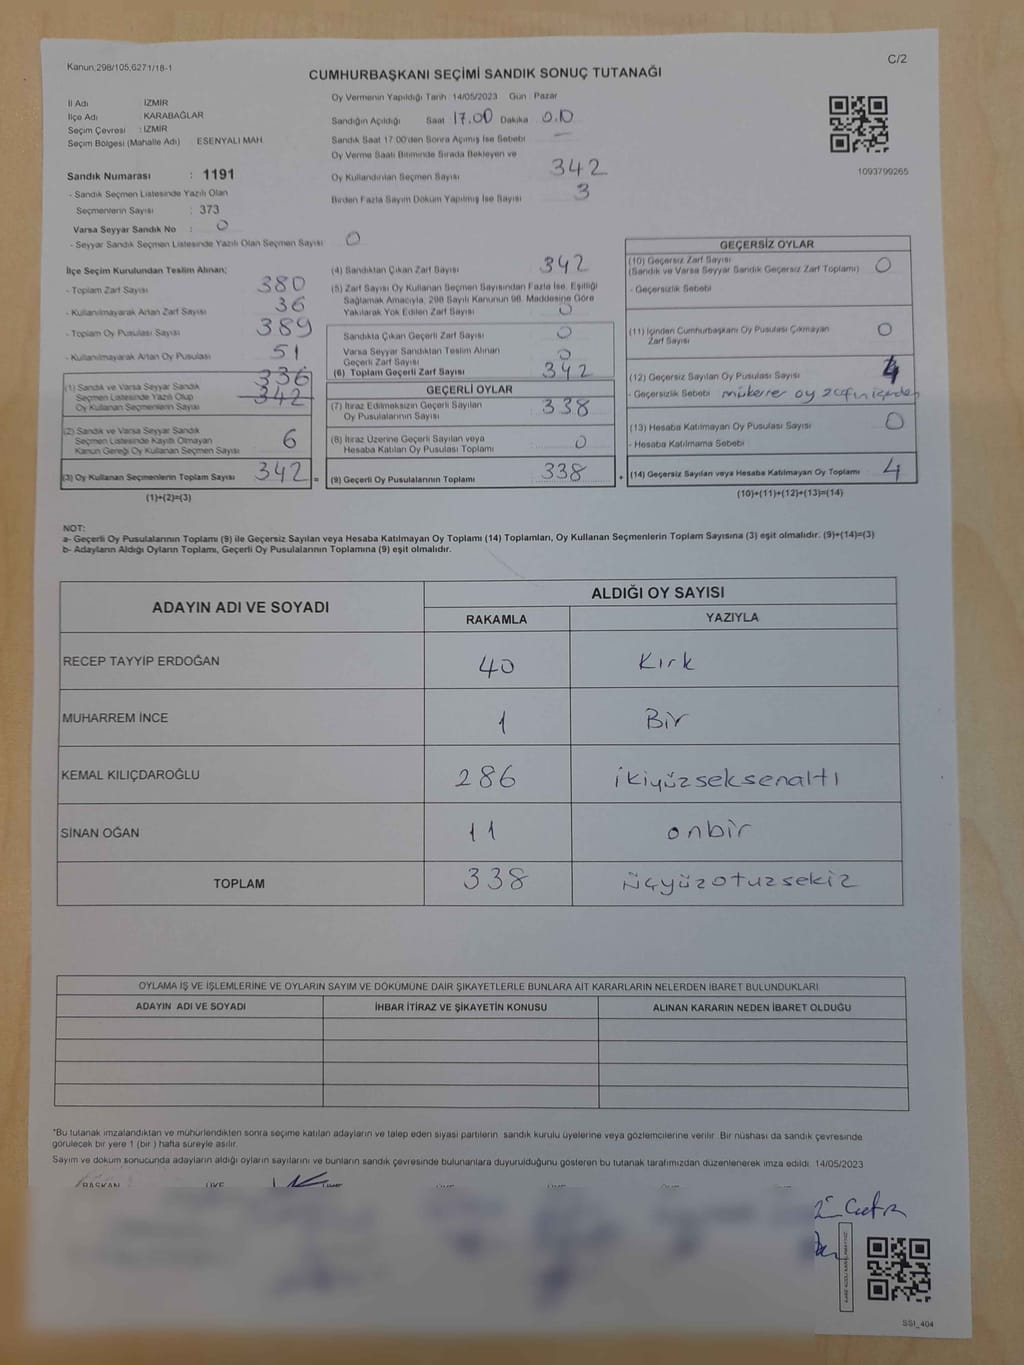 Kanun,298/105,6271/18-1
C/2
CUMHURBAŞKANI SEÇİMİ SANDIK SONUÇ TUTANAĞI
İl Adı İZMİR
İlçe Adı KARABAĞLAR
Seçim Çevresi : İZMİR
Seçim Bölgesi (Mahalle Adı) ESENYALI MAH
Sandık Numarası : 1191
- Sandık Seçmen Listesinde Yazılı Olan
Seçmenlerin Sayısı : 373
Varsa Seyyar Sandık No : 0
- Seyyar Sandık Seçmen Listesinde Yazılı Olan Seçmen Sayısı 0
Oy Vermenin Yapıldığı Tarih :14/05/2023 Gün : Pazar
Sandığın Açıldığı Saat 17.00 Dakika 0.10
Sandık Saat 17:00'den Sonra Açılmış İse Sebebi —
Oy Verme Saati Bitiminde Sırada Bekleyen ve
Oy Kullandırılan Seçmen Sayısı 342
Birden Fazla Sayım Döküm Yapılmış İse Sayısı 3
1093799265
İlçe Seçim Kurulundan Teslim Alınan;
- Toplam Zarf Sayısı 380
- Kullanılmayarak Artan Zarf Sayısı 36
- Toplam Oy Pusulası Sayısı 389
- Kullanılmayarak Artan Oy Pusulası 51
336
(1) Sandık ve Varsa Seyyar Sandık
Seçmen Listesinde Yazılı Olup 342
Oy Kullanan Seçmenlerin Sayısı
(2) Sandık ve Varsa Seyyar Sandık
Seçmen Listesinde Kayıtlı Olmayan 6
Kanun Gereği Oy Kullanan Seçmen Sayısı
(3) Oy Kullanan Seçmenlerin Toplam Sayısı 342 =
(1)+(2)=(3)
(4) Sandıktan Çıkan Zarf Sayısı 342
(5) Zarf Sayısı Oy Kullanan Seçmen Sayısından Fazla İse, Eşitliği
Sağlamak Amacıyla, 298 Sayılı Kanunun 98. Maddesine Göre
Yakılarak Yok Edilen Zarf Sayısı 0
Sandıkta Çıkan Geçerli Zarf Sayısı 0
Varsa Seyyar Sandıktan Teslim Alınan
Geçerli Zarf Sayısı 0
(6) Toplam Geçerli Zarf Sayısı 342
GEÇERLİ OYLAR
(7) İtiraz Edilmeksizin Geçerli Sayılan
Oy Pusulalarının Sayısı 338
(8) İtiraz Üzerine Geçerli Sayılan veya
Hesaba Katılan Oy Pusulası Toplamı 0
(9) Geçerli Oy Pusulalarının Toplamı 338 +
GEÇERSİZ OYLAR
(10) Geçersiz Zarf Sayısı
(Sandık ve Varsa Seyyar Sandık Geçersiz Zarf Toplamı) 0
- Geçersizlik Sebebi
(11) İçinden Cumhurbaşkanı Oy Pusulası Çıkmayan
Zarf Sayısı 0
(12) Geçersiz Sayılan Oy Pusulası Sayısı 4
- Geçersizlik Sebebi mükerrer oy zarfın içinden
(13) Hesaba Katılmayan Oy Pusulası Sayısı 0
- Hesaba Katılmama Sebebi
(14) Geçersiz Sayılan veya Hesaba Katılmayan Oy Toplamı 4
(10)+(11)+(12)+(13)=(14)
NOT:
a- Geçerli Oy Pusulalarının Toplamı (9) ile Geçersiz Sayılan veya Hesaba Katılmayan Oy Toplamı (14) Toplamları, Oy Kullanan Seçmenlerin Toplam Sayısına (3) eşit olmalıdır. (9)+(14)=(3)
b- Adayların Aldığı Oyların Toplamı, Geçerli Oy Pusulalarının Toplamına (9) eşit olmalıdır.
ADAYIN ADI VE SOYADI ALDIĞI OY SAYISI
RAKAMLA YAZIYLA
RECEP TAYYİP ERDOĞAN 40 Kırk
MUHARREM İNCE 1 Bir
KEMAL KILIÇDAROĞLU 286 ikiyüzseksenaltı
SİNAN OĞAN 11 onbir
TOPLAM 338 üçyüzotuzsekiz
OYLAMA İŞ VE İŞLEMLERİNE VE OYLARIN SAYIM VE DÖKÜMÜNE DAİR ŞİKAYETLERLE BUNLARA AİT KARARLARIN NELERDEN İBARET BULUNDUKLARI
ADAYIN ADI VE SOYADI İHBAR İTİRAZ VE ŞİKAYETİN KONUSU ALINAN KARARIN NEDEN İBARET OLDUĞU
*Bu tutanak imzalandıktan ve mühürlendikten sonra seçime katılan adayların ve talep eden siyasi partilerin sandık kurulu üyelerine veya gözlemcilerine verilir. Bir nüshası da sandık çevresinde
görülecek bir yere 1 (bir ) hafta süreyle asılır.
Sayım ve döküm sonucunda adayların aldığı oyların sayılarını ve bunların sandık çevresinde bulunanlara duyurulduğunu gösteren bu tutanak tarafımızdan düzenlenerek imza edildi. 14/05/2023
BAŞKAN ÜYE
SSI_404